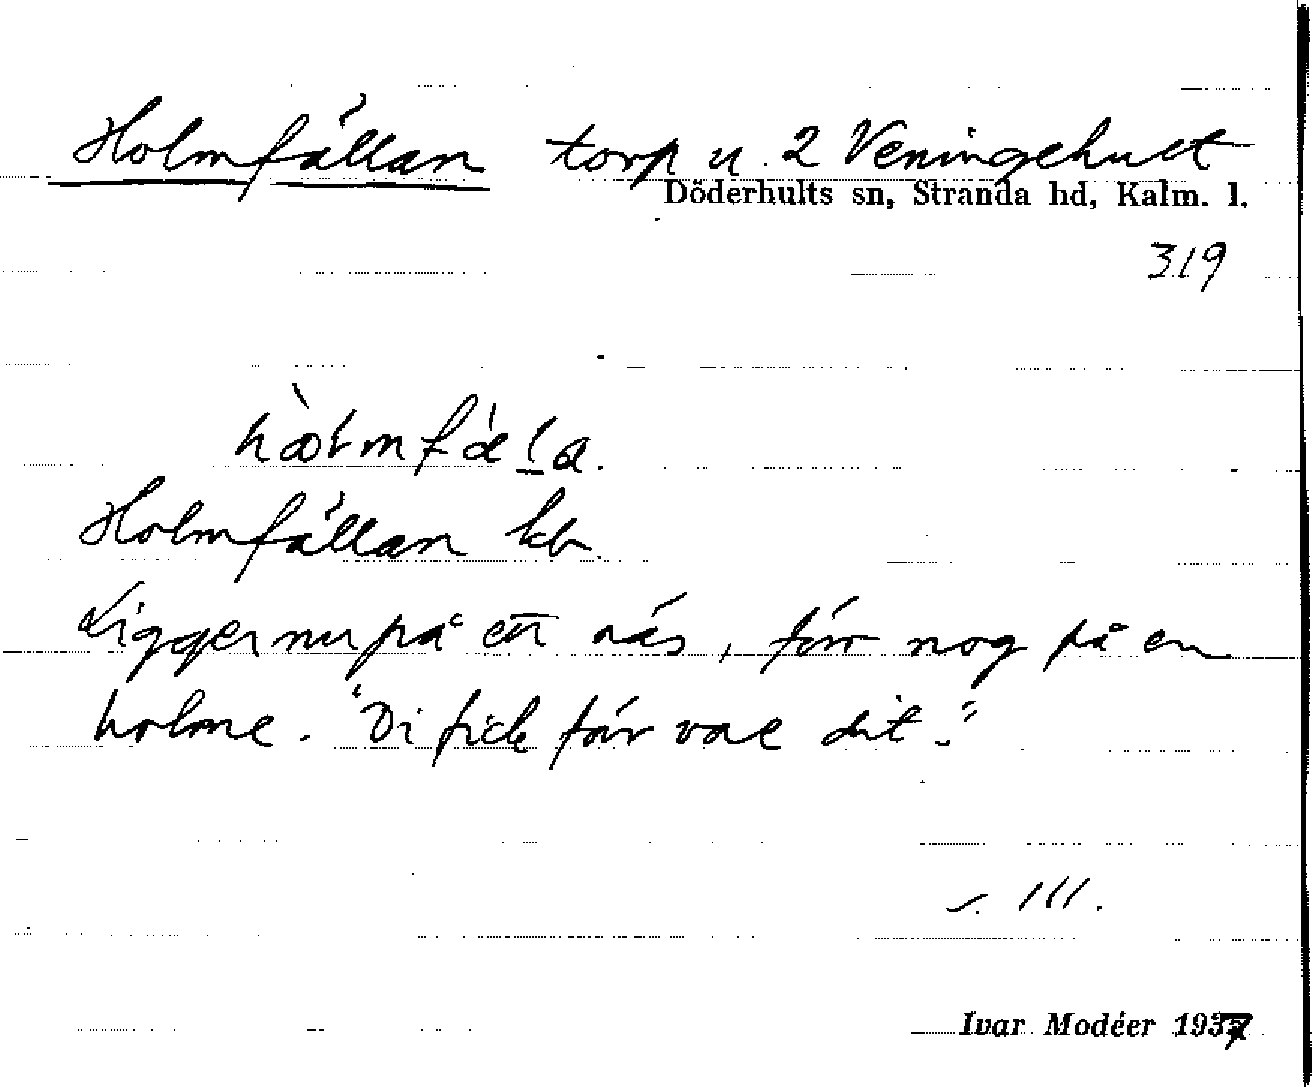 Holmfällan torp u. 2 Veningehult
Döderhults sn, Stranda hd, Kalm. l.
319
Holmfällan kb.
Ligger nu på ett näs, förr nog på en
holme. "Di fick för vae dit."
s. 111.
Ivar Modéer 1937